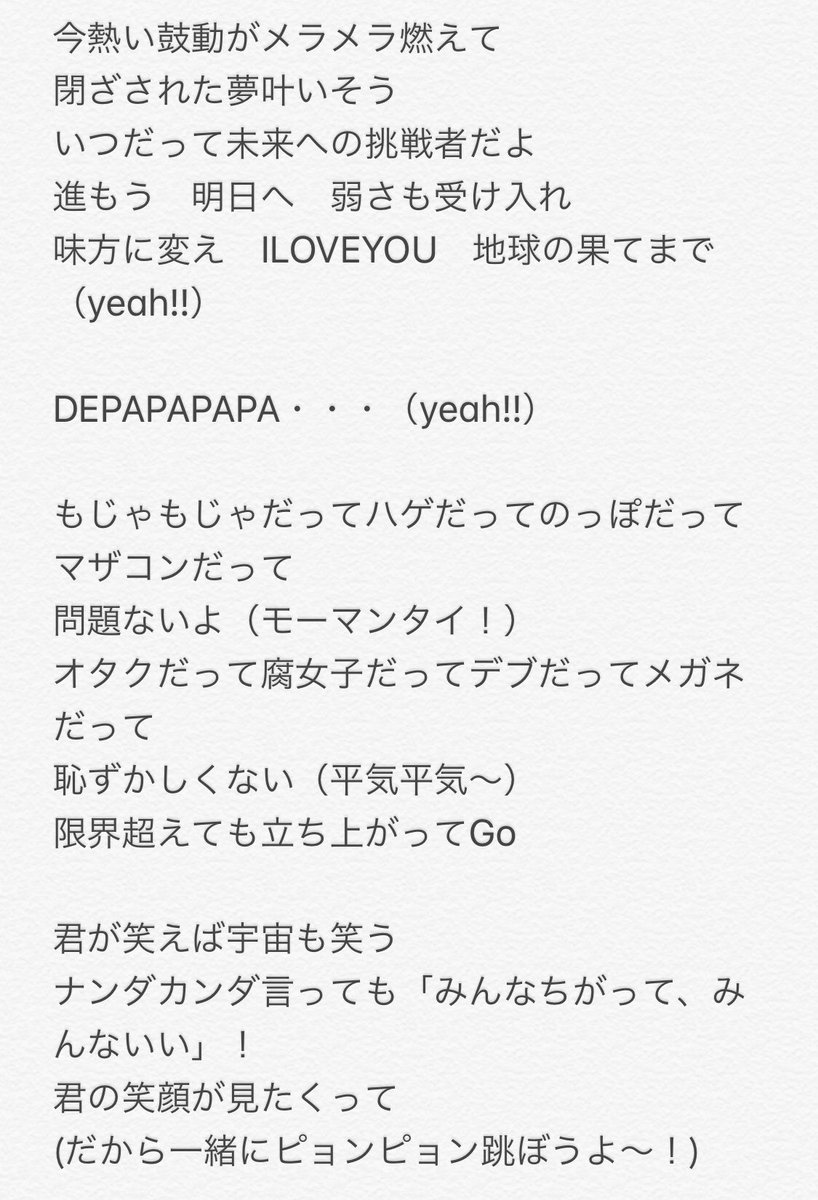 今熱い鼓動がメラメラ燃えて
閉ざされた夢叶いそう
いつだって未来への挑戦者だよ
進もう　明日へ　弱さも受け入れ
味方に変え　ILOVEYOU　地球の果てまで
（yeah!!）
DEPAPAPAPA・・・（yeah!!）
もじゃもじゃだってハゲだってのっぽだって
マザコンだって
問題ないよ（モーマンタイ！）
オタクだって腐女子だってデブだってメガネ
だって
恥ずかしくない（平気平気〜）
限界超えても立ち上がってGo
君が笑えば宇宙も笑う
ナンダカンダ言っても「みんなちがって、み
んないい」！
君の笑顔が見たくって
(だから一緒にピョンピョン跳ぼうよ〜！)